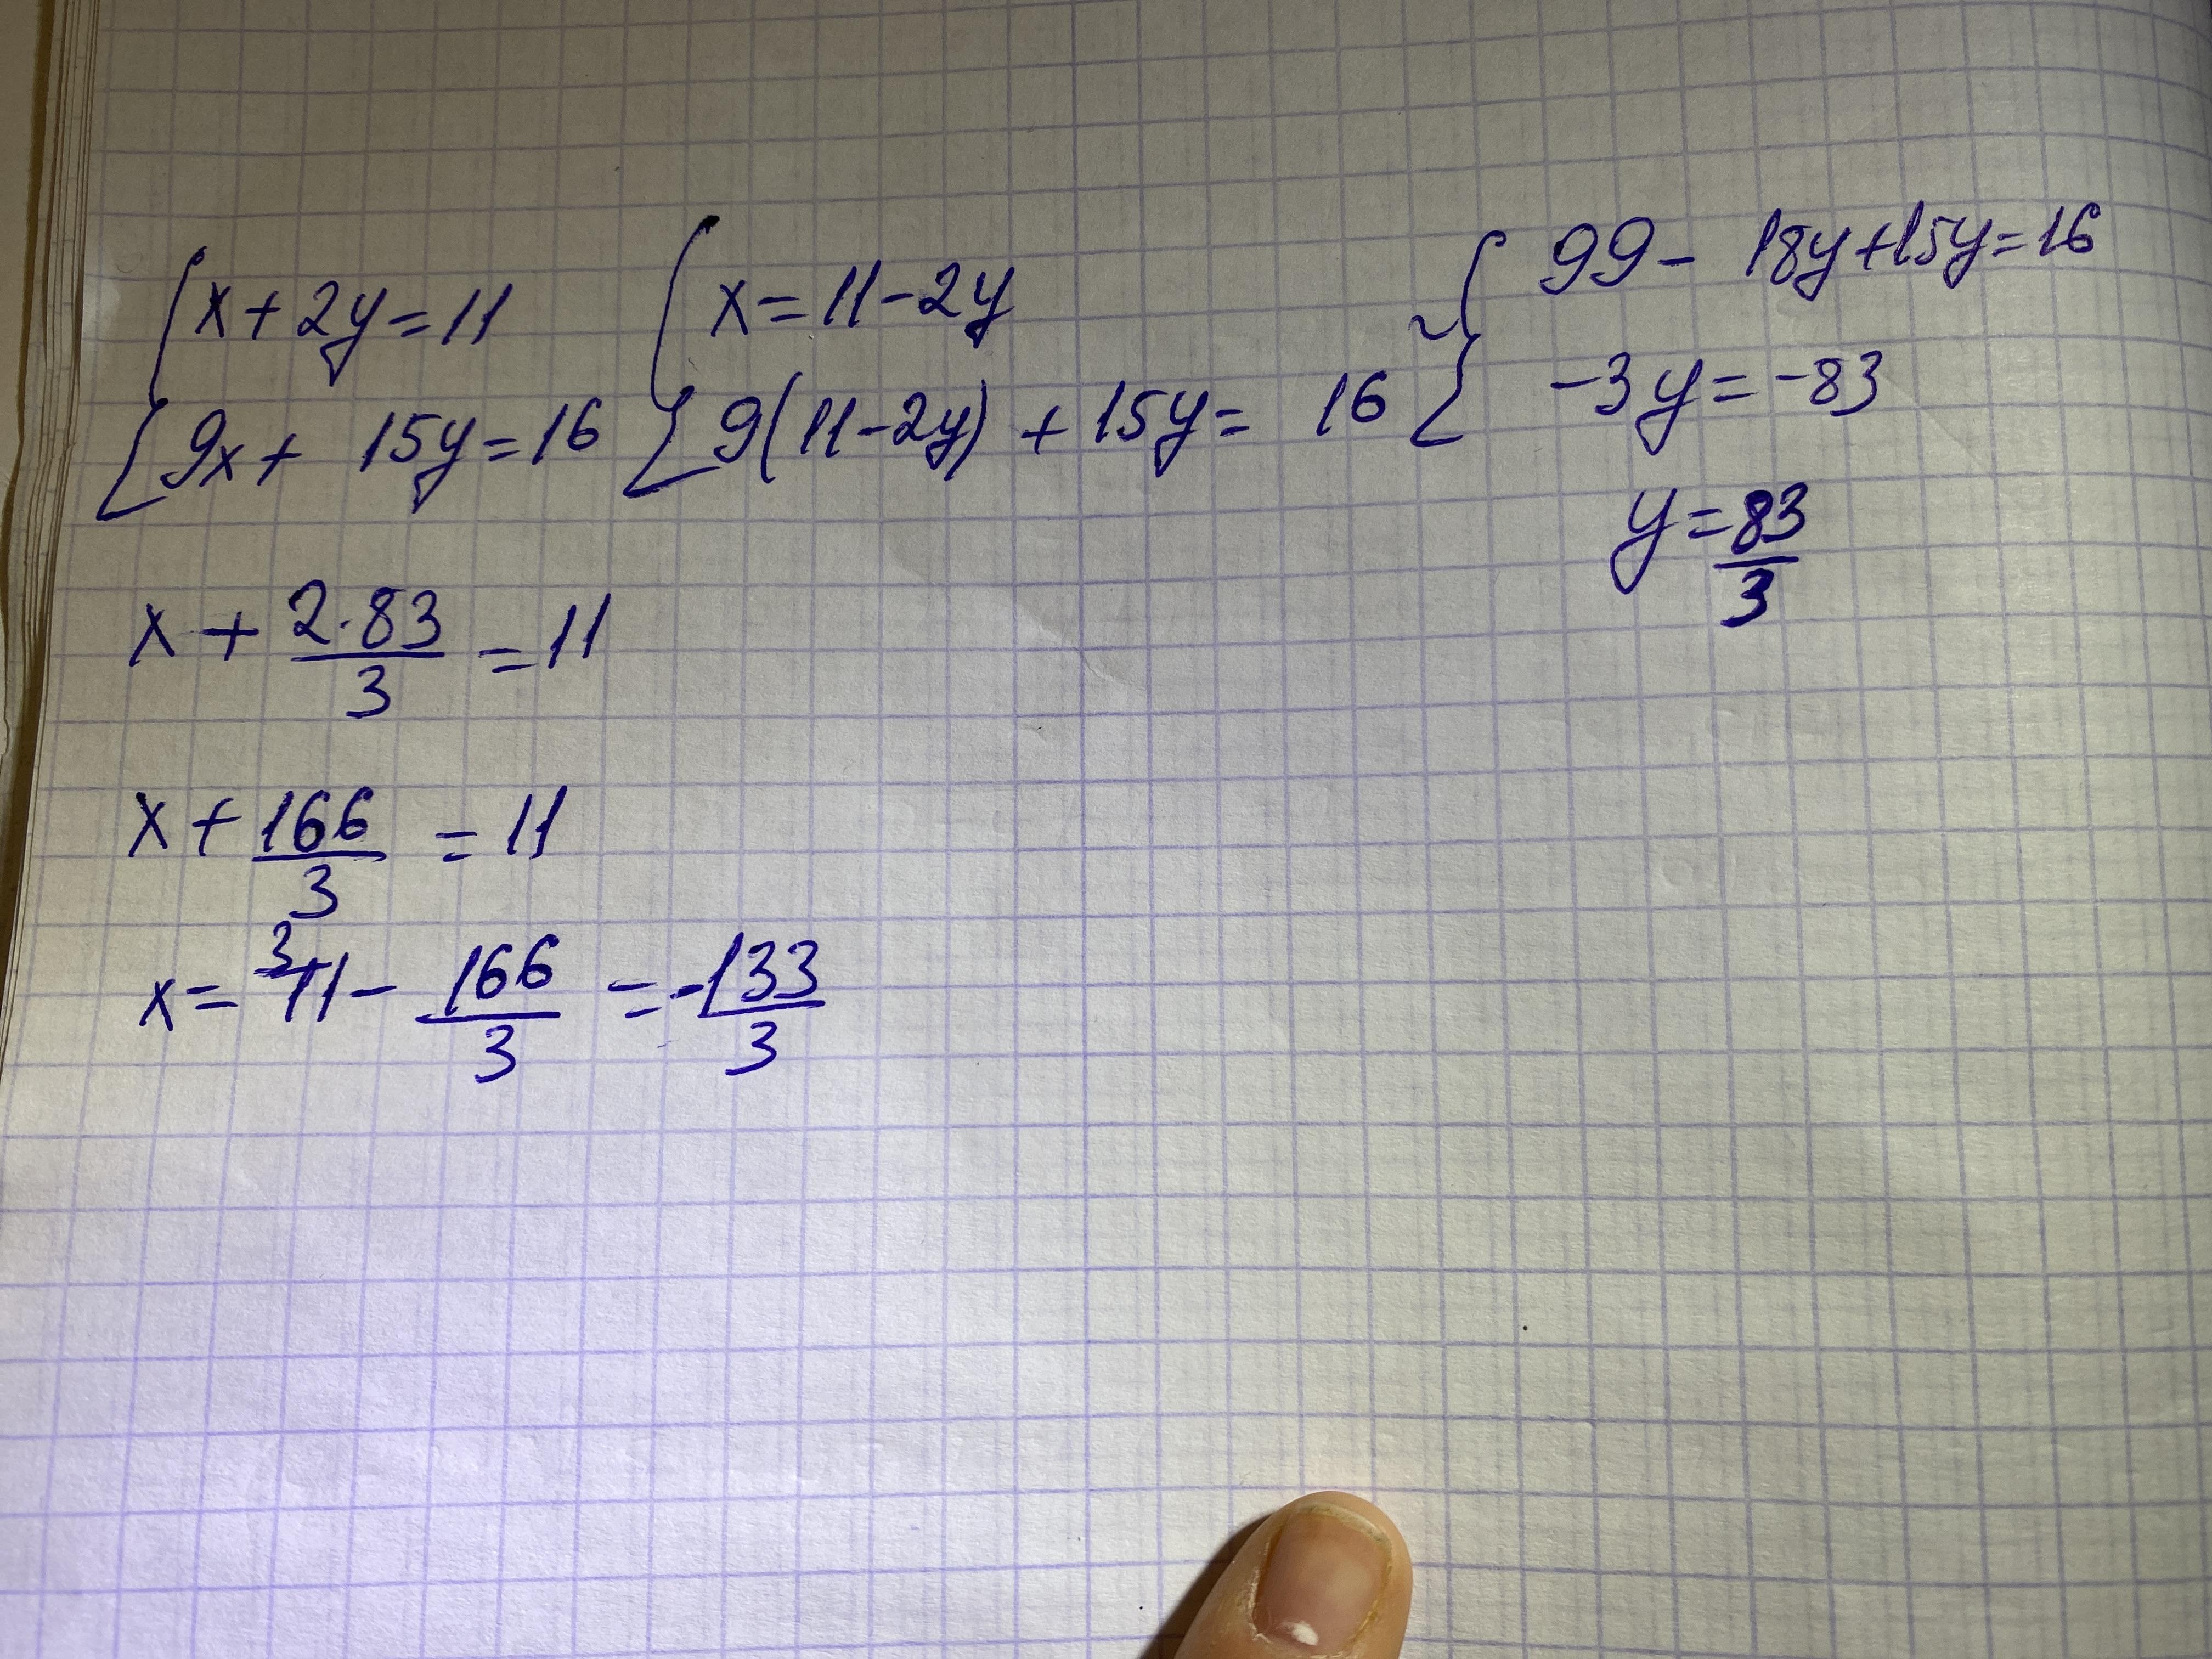 { x + 2y = 11
{ 9x + 15y = 16
{ x = 11 - 2y
{ 9(11 - 2y) + 15y = 16
~ { 99 - 18y + 15y = 16
-3y = -83
y = 83/3
x + 2·83/3 = 11
x + 166/3 = 11
x = ³⁄11 - 166/3 = -133/3